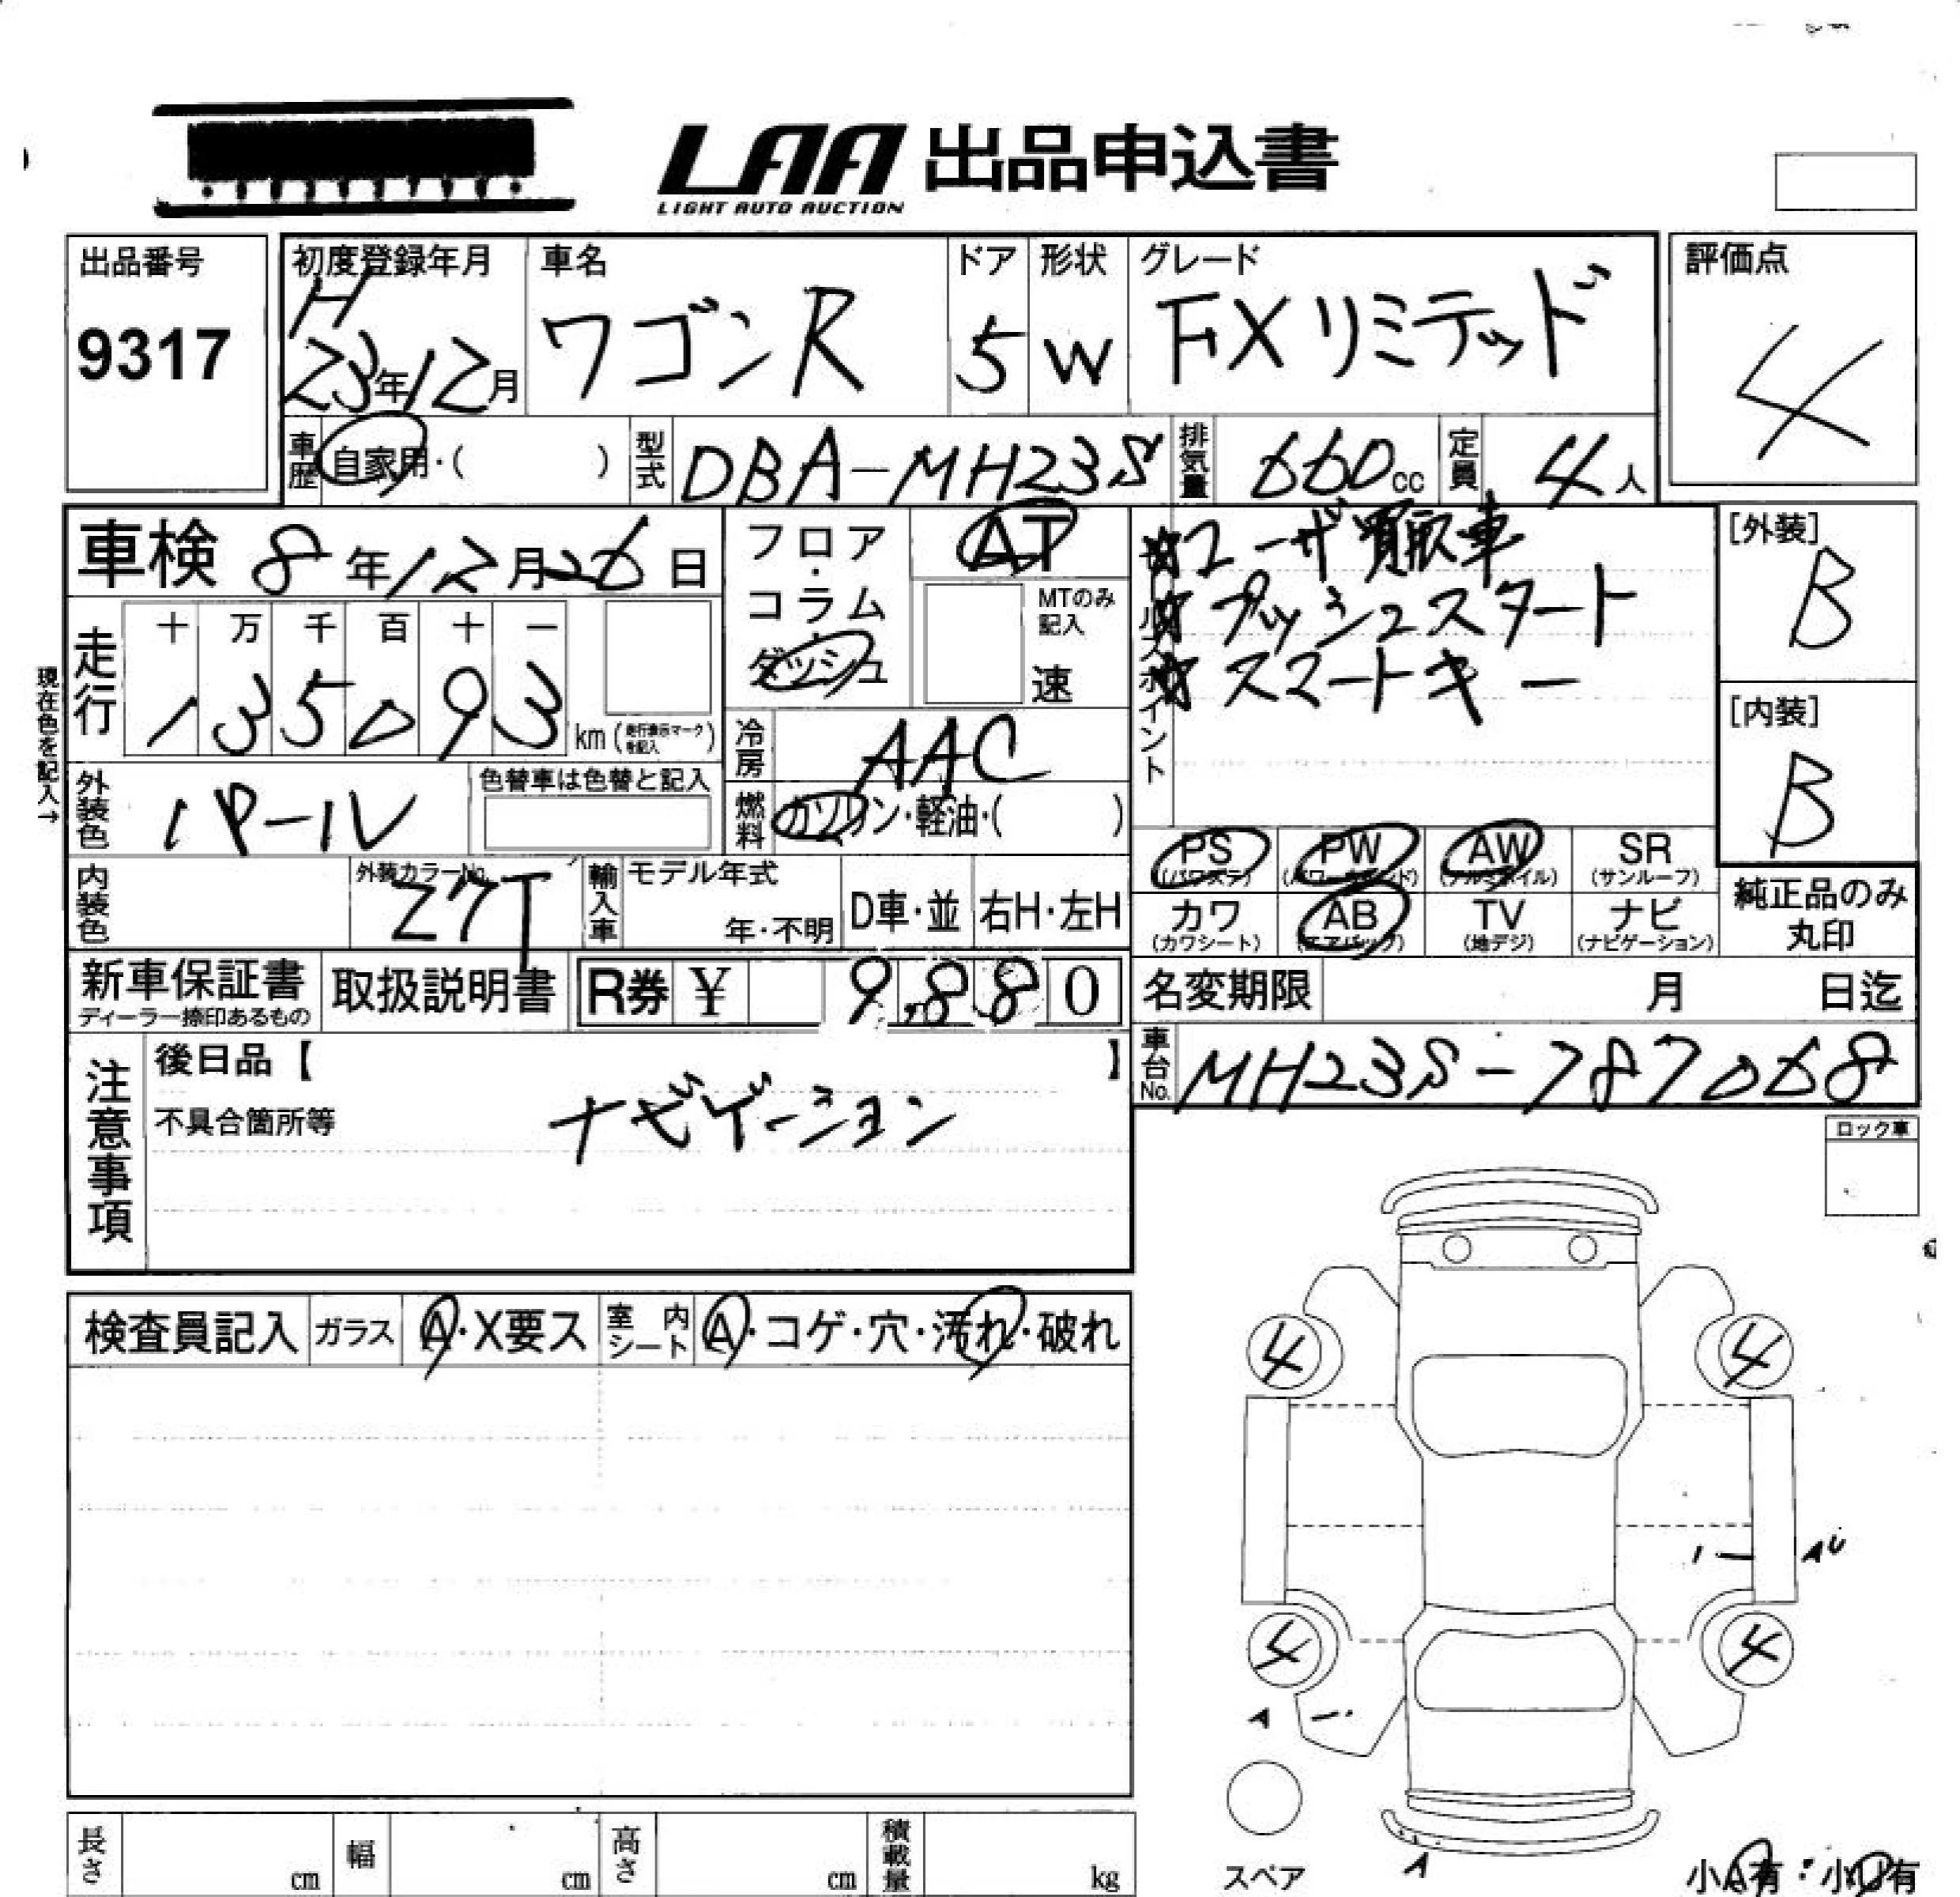 LAA 出品申込書
LIGHT AUTO AUCTION
出品番号
9317
初度登録年月
H
23年12月
車名
ワゴンR
ドア
5
形状
W
グレード
FXリミテッド
評価点
4
車歴 自家用・( )
型式 DBA-MH23S
排気量 660cc
定員 4人
車検 8年12月26日
フロア・コラム・ダッシュ
AT
MTのみ記入
速
セールスポイント
☆ユーザ買取車
☆プッシュスタート
☆スマートキー
[外装]
B
[内装]
B
走行
十 万 千 百 十 一
1 3 5 0 9 3 km (走行表示マークを記入)
現在色を記入→
冷房 AAC
外装色 パール
色替車は色替と記入
燃料 ガソリン・軽油・( )
PS (パワステ)
PW (パワーウインド)
AW (アルミホイル)
SR (サンルーフ)
カワ (カワシート)
AB (エアバック)
TV (地デジ)
ナビ (ナビゲーション)
純正品のみ丸印
内装色
外装カラーNo.
Z7T
輸入車 モデル年式
年・不明
D車・並 右H・左H
新車保証書
ディーラー捺印あるもの
取扱説明書
R券 ¥ 9,880
名変期限 月 日迄
車台No. MH23S-787068
注意事項
後日品【 】
不具合箇所等
ナビゲーション
ロック車
検査員記入 ガラス A・X要ス
室内シート A・コゲ・穴・汚れ・破れ
4 4
AU
4 4
A
スペア
A
小A有・小U有
長さ cm
幅 cm
高さ cm
積載量 kg